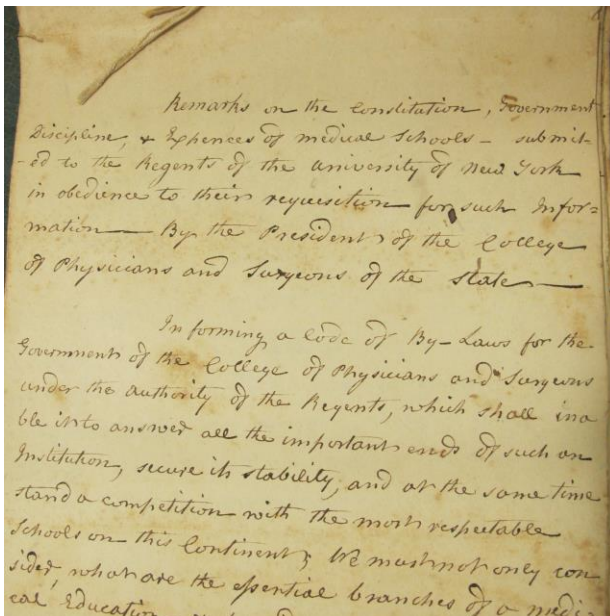 Remarks on the Constitution, Government
Discipline, & Expences of medical Schools - submit-
-ed to the Regents of the University of New York
in obedience to their requisition for such Infor=
mation - By the President of the College
of Physicians and Surgeons of the State -
In forming a Code of By-Laws for the
Government of the College of Physicians and Surgeons
under the authority of the Regents, which shall ina
ble it to answer all the important ends of such an
Institution, secure its stability, and at the same time
stand a competition with the most respectable
Schools on this Continent; We must not only con
sider, what are the essential branches of a medi-
cal Education